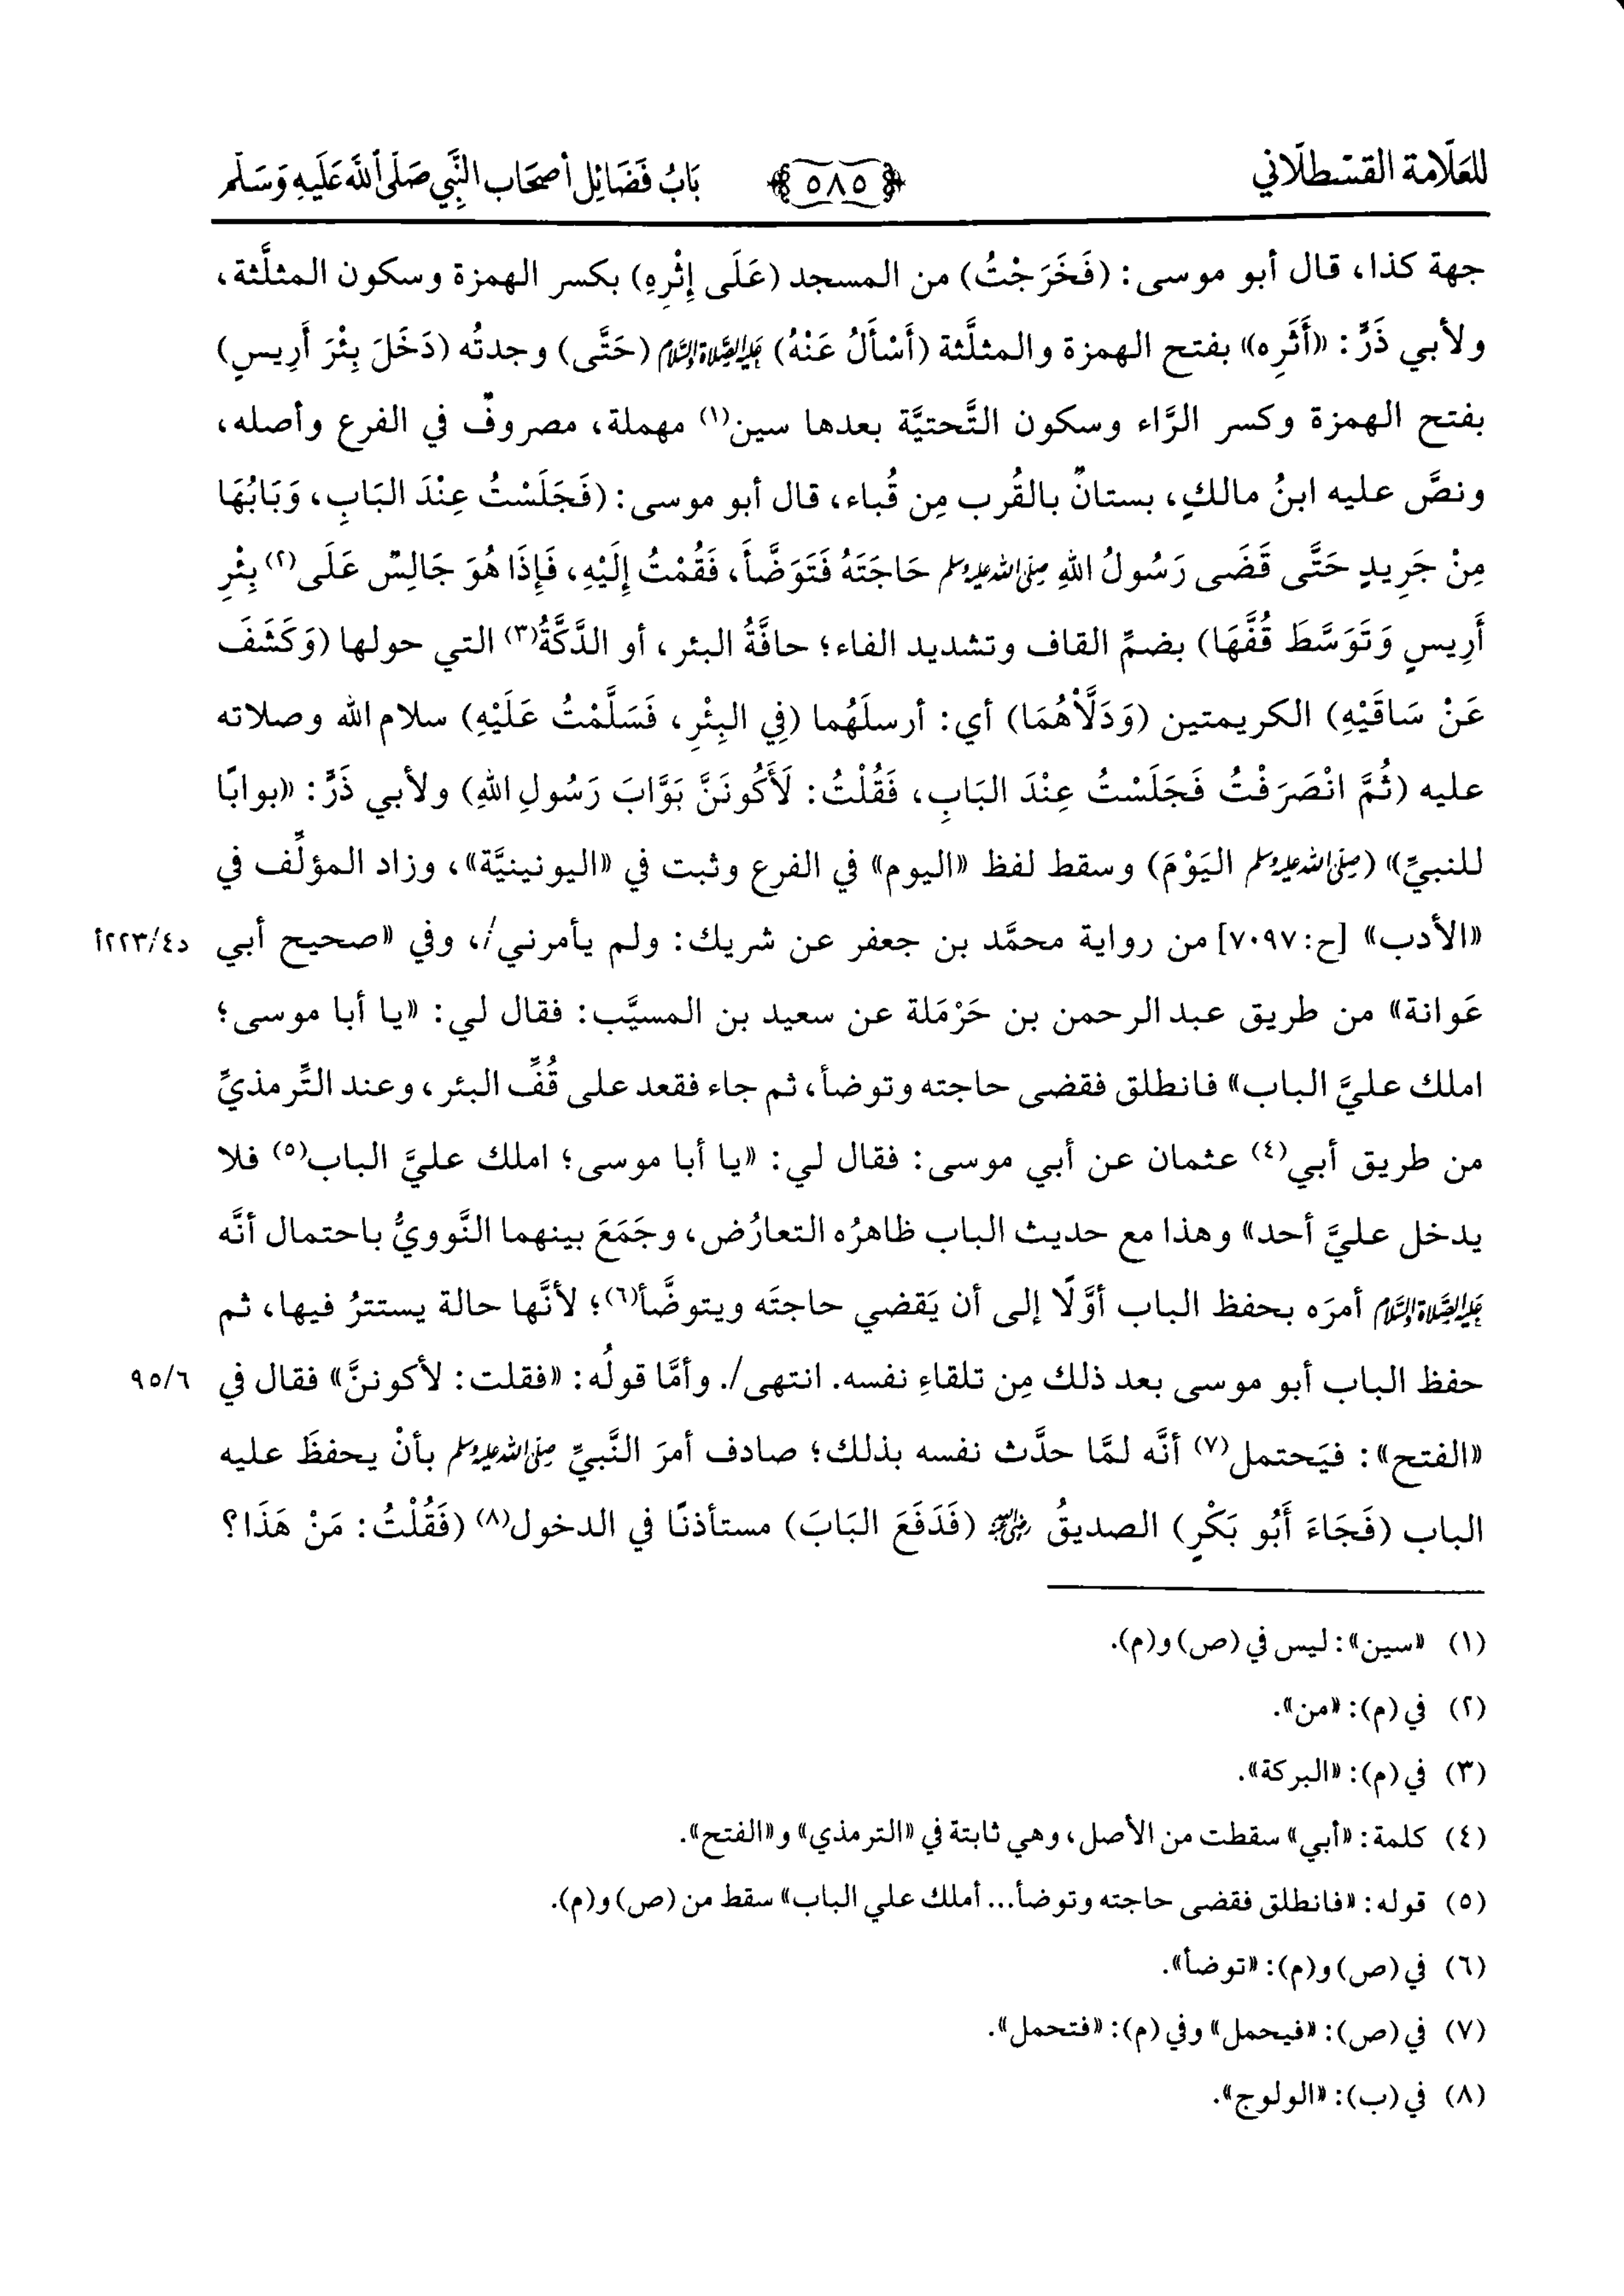 للعلّامة القسطلّاني ﴿٥٨٥﴾ بَابُ فَضَائِل أصحَاب النَّبِي صَلَّى اللَّه عَلَيهِ وَسَلَّم
جهة كذا، قال أبو موسى: (فَخَرَجْتُ) من المسجد (عَلَى إِثْرِهِ) بكسر الهمزة وسكون المثلَّثة،
ولأبي ذَرٍّ: «أَثَرِه» بفتح الهمزة والمثلَّثة (أَسْأَلُ عَنْهُ) عليه الصلاة والسلام (حَتَّى) وجدتُه (دَخَلَ بِئْرَ أَرِيسٍ)
بفتح الهمزة وكسر الرَّاء وسكون التَّحتيَّة بعدها سين(١) مهملة، مصروفٌ في الفرع وأصله،
ونصَّ عليه ابنُ مالكٍ، بستانٌ بالقُرب مِن قُباء، قال أبو موسى: (فَجَلَسْتُ عِنْدَ البَابِ، وَبَابُهَا
مِنْ جَرِيدٍ حَتَّى قَضَى رَسُولُ اللهِ صلى الله عليه وسلم حَاجَتَهُ فَتَوَضَّأَ، فَقُمْتُ إِلَيْهِ، فَإِذَا هُوَ جَالِسٌ عَلَى(٢) بِئْرِ
أَرِيسٍ وَتَوَسَّطَ قُفَّهَا) بضمِّ القاف وتشديد الفاء؛ حافَّةُ البئر، أو الدَّكَّةُ(٣) التي حولها (وَكَشَفَ
عَنْ سَاقَيْهِ) الكريمتين (وَدَلَّاهُمَا) أي: أرسلَهُما (فِي البِئْرِ، فَسَلَّمْتُ عَلَيْهِ) سلام الله وصلاته
عليه (ثُمَّ انْصَرَفْتُ فَجَلَسْتُ عِنْدَ البَابِ، فَقُلْتُ: لَأَكُونَنَّ بَوَّابَ رَسُولِ اللهِ) ولأبي ذَرٍّ: «بوابًا
للنبيِّ» (صلى الله عليه وسلم اليَوْمَ) وسقط لفظ «اليوم» في الفرع وثبت في «اليونينيَّة»، وزاد المؤلِّف في
«الأدب» [ح: ٧٠٩٧] من رواية محمَّد بن جعفر عن شريك: ولم يأمرني/، وفي «صحيح أبي د٤/٢٢٣أ
عَوانة» من طريق عبد الرحمن بن حَرْمَلة عن سعيد بن المسيَّب: فقال لي: «يا أبا موسى؛
املك عليَّ الباب» فانطلق فقضى حاجته وتوضأ، ثم جاء فقعد على قُفِّ البئر، وعند التِّرمذيِّ
من طريق أبي(٤) عثمان عن أبي موسى: فقال لي: «يا أبا موسى؛ املك عليَّ الباب(٥) فلا
يدخل عليَّ أحد» وهذا مع حديث الباب ظاهرُه التعارُض، وجَمَعَ بينهما النَّوويُّ باحتمال أنَّه
عليه الصلاة والسلام أمرَه بحفظ الباب أوَّلًا إلى أن يَقضي حاجتَه ويتوضَّأ(٦)؛ لأنَّها حالة يستترُ فيها، ثم
حفظ الباب أبو موسى بعد ذلك مِن تلقاءِ نفسه. انتهى/. وأمَّا قولُه: «فقلت: لأكوننَّ» فقال في ٩٥/٦
«الفتح»: فيَحتمل(٧) أنَّه لمَّا حدَّث نفسه بذلك؛ صادف أمرَ النَّبيِّ صلى الله عليه وسلم بأنْ يحفظَ عليه
الباب (فَجَاءَ أَبُو بَكْرٍ) الصديقُ رضي الله عنه (فَدَفَعَ البَابَ) مستأذنًا في الدخول(٨) (فَقُلْتُ: مَنْ هَذَا؟
(١) «سين»: ليس في (ص) و(م).
(٢) في (م): «من».
(٣) في (م): «البركة».
(٤) كلمة: «أبي» سقطت من الأصل، وهي ثابتة في «الترمذي» و«الفتح».
(٥) قوله: «فانطلق فقضى حاجته وتوضأ... أملك علي الباب» سقط من (ص) و(م).
(٦) في (ص) و(م): «توضأ».
(٧) في (ص): «فيحمل» وفي (م): «فتحمل».
(٨) في (ب): «الولوج».